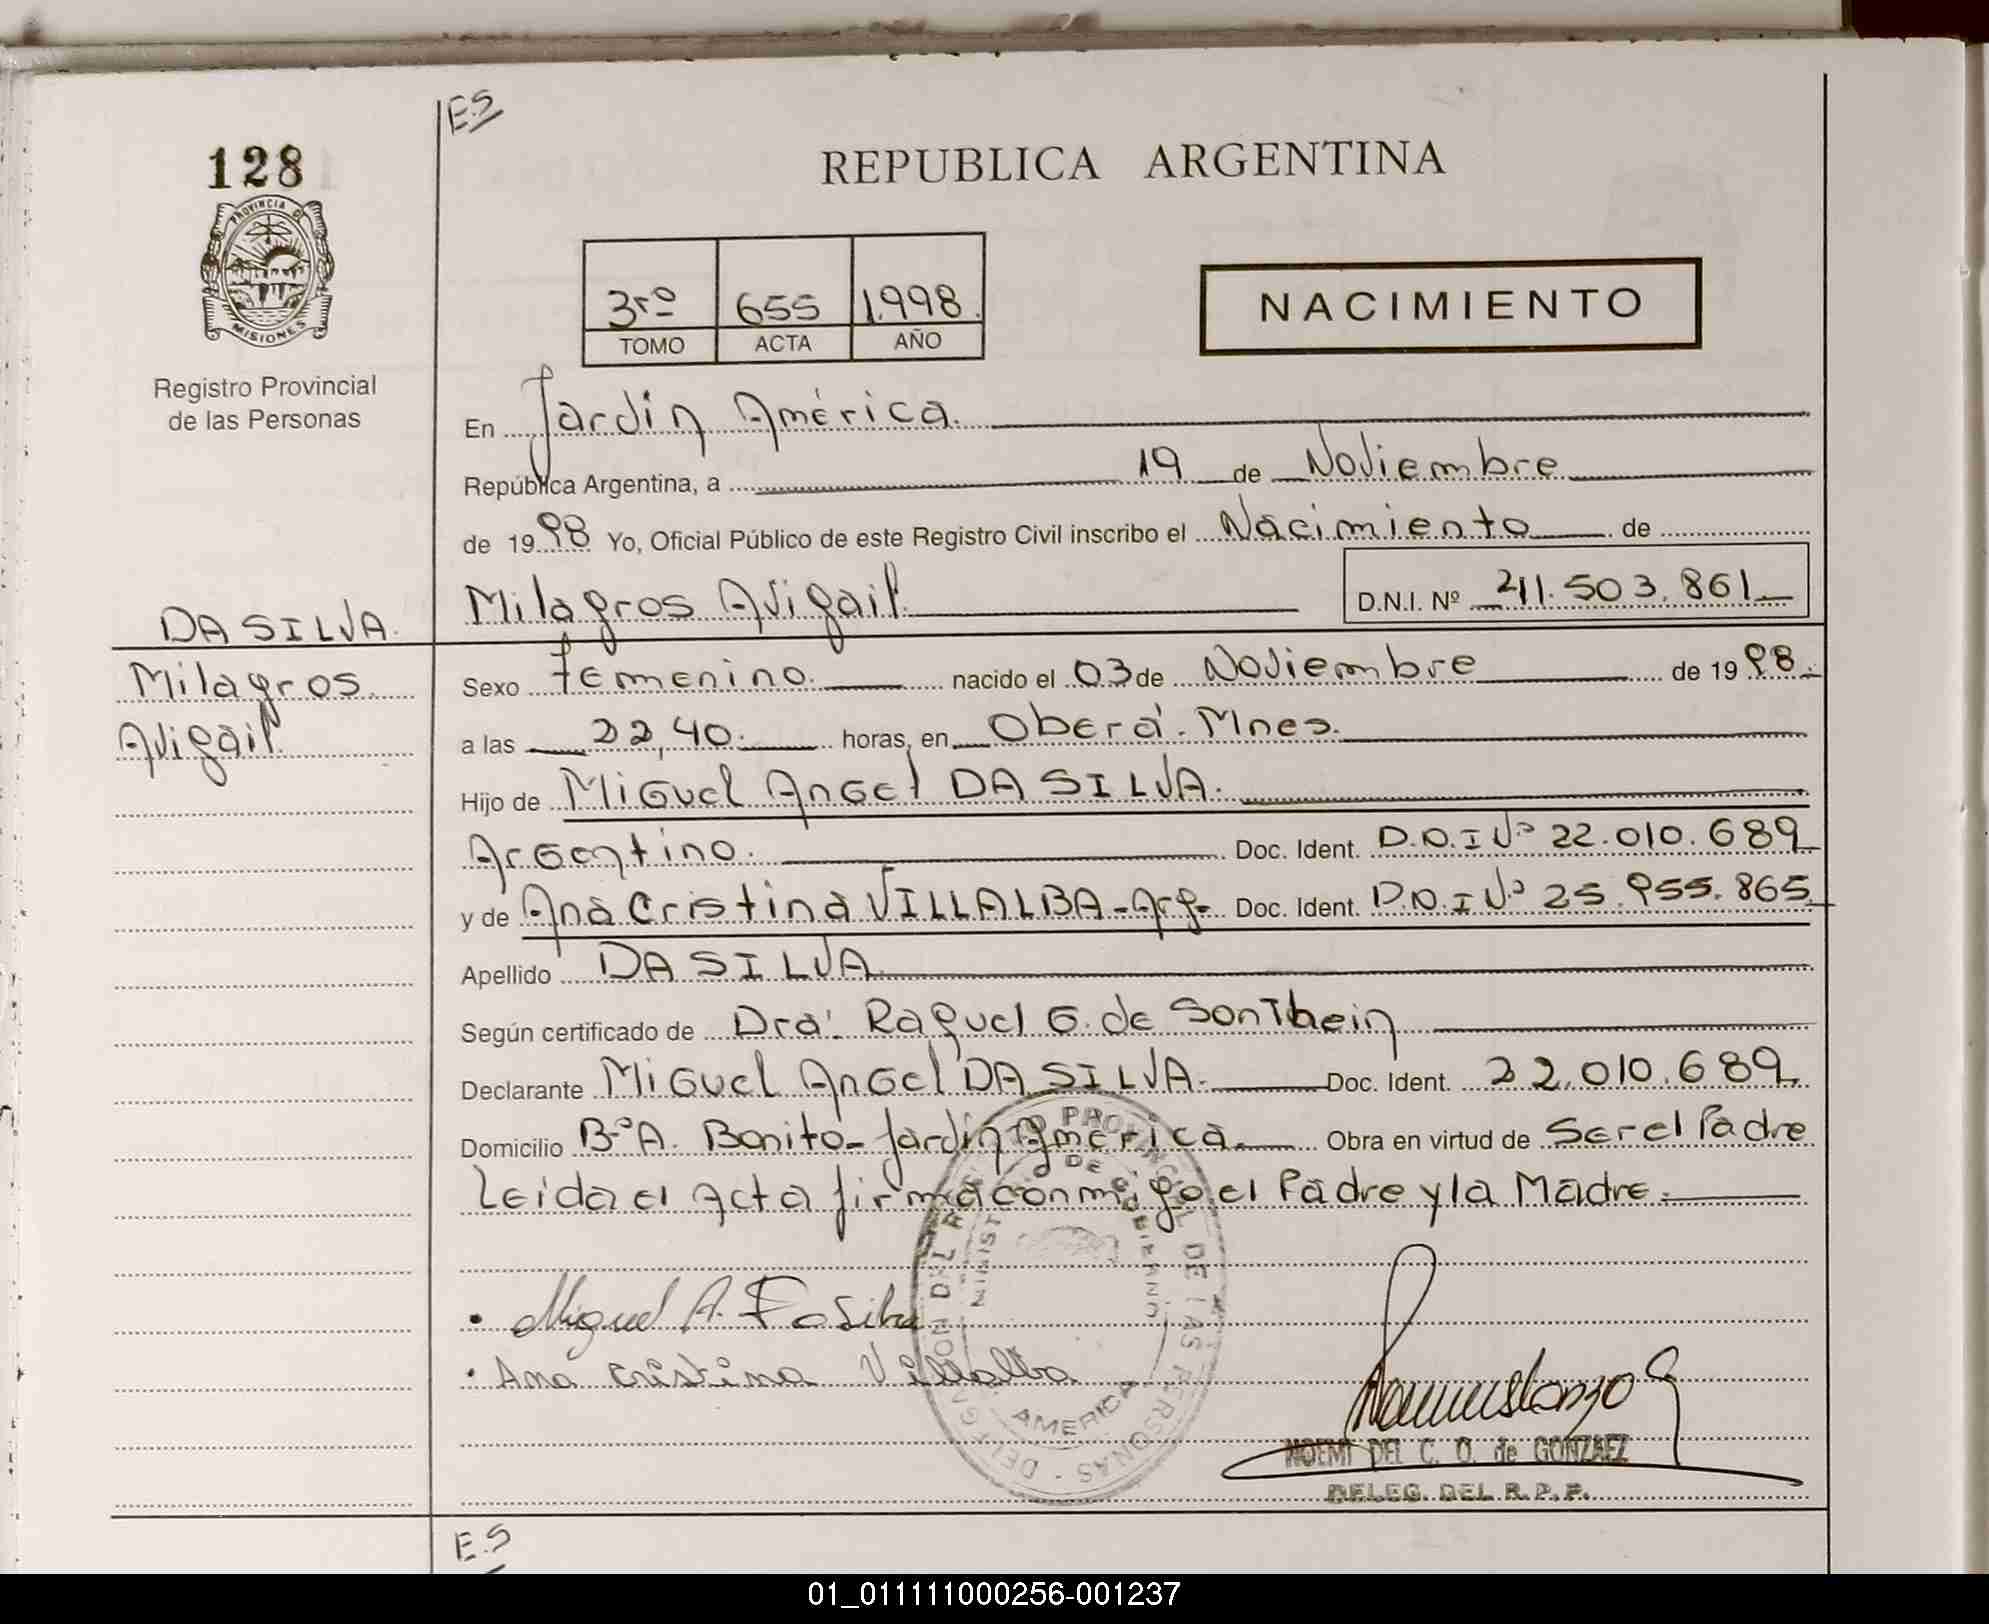 E.S
128
REPUBLICA ARGENTINA
PROVINCIA DE
MISIONES
Registro Provincial
de las Personas
3ro 655 1.998.
TOMO ACTA AÑO
NACIMIENTO
En Jardín América.
República Argentina, a 19 de Noviembre
de 1998 Yo, Oficial Público de este Registro Civil inscribo el Nacimiento de
Milagros Avigail. D.N.I. Nº 41.503.861
DA SILVA.
Milagros
Avigail.
Sexo femenino. nacido el 03 de Noviembre de 1998.
a las 22,40. horas, en Oberá. Mnes.
Hijo de Miguel Angel DA SILVA.
Argentino. Doc. Ident. D.N.I Nº 22.010.689
y de Ana Cristina VILLALBA - Arg- Doc. Ident. D.N.I Nº 25.955.865
Apellido DA SILVA
Según certificado de Dra. Raquel G. de Sonthein
Declarante Miguel Angel DA SILVA. Doc. Ident. 22.010.689.
Domicilio Bº A. Bonito - Jardín América. Obra en virtud de Ser el Padre
Leida el Acta firma conmigo el Padre y la Madre.
Miguel A. Da Silva
Ana Cristina Villalba
PROVINCIAL DE LAS PERSONAS - DELEGACION DEL
AMERICA
NOEMI DEL C. O. de GONZALEZ
DELEG. DEL R. P. P.
E.S
01_011111000256-001237